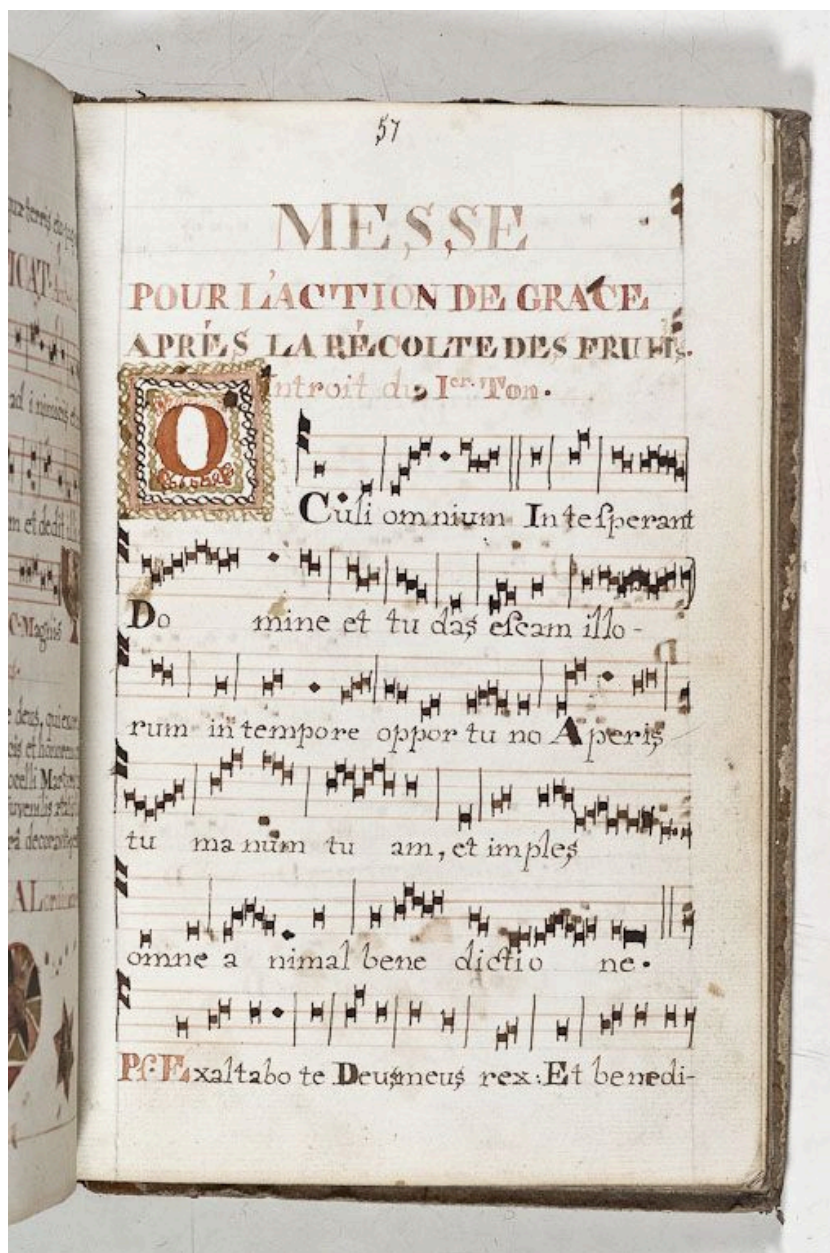 57
MESSE
POUR L'ACTION DE GRACE
APRÉS LA RÉCOLTE DES FRUITS.
Introit du Ier. Ton.
O
Culi omnium In te ſperant
Do mine et tu das eſcam illo-
rum in tempore oppor tu no Aperis
tu ma num tu am, et imples
omne a nimal bene dictio ne.
Pſ. Exaltabo te Deus meus rex: Et benedi-
ad i nimicis
m et dedit
C. Magnis
e deus, qui